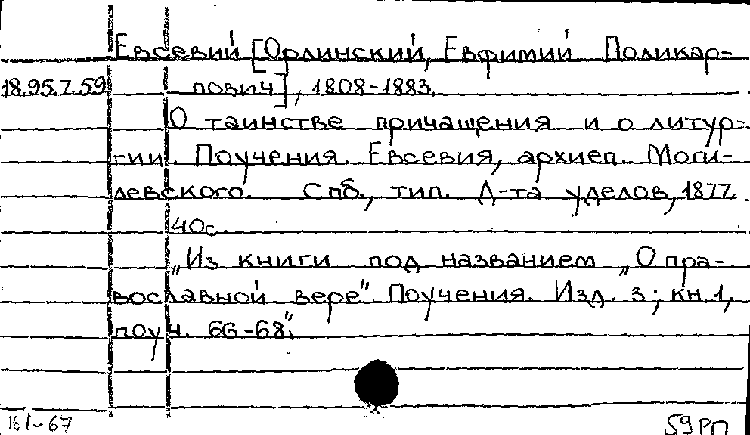 Евсевий [Орлинский, Евфимий Поликар-
18.95.7.59 пович], 1808-1883.
О таинстве причащения и о литур-
гии. Поучения Евсевия, архиеп. Моги-
левского. Спб., тип. Д-та уделов, 1877.
40с.
„Из книги под названием „О пра-
вославной вере". Поучения. Изд. 3; кн. 1,
поуч. 66-68".
59РП